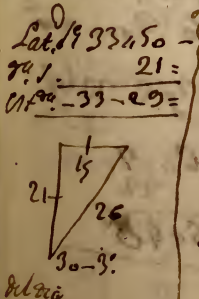 Lat. 33"50 -
21 =
- 33 - 29 =
15
21
26
30 - 3:
del dia